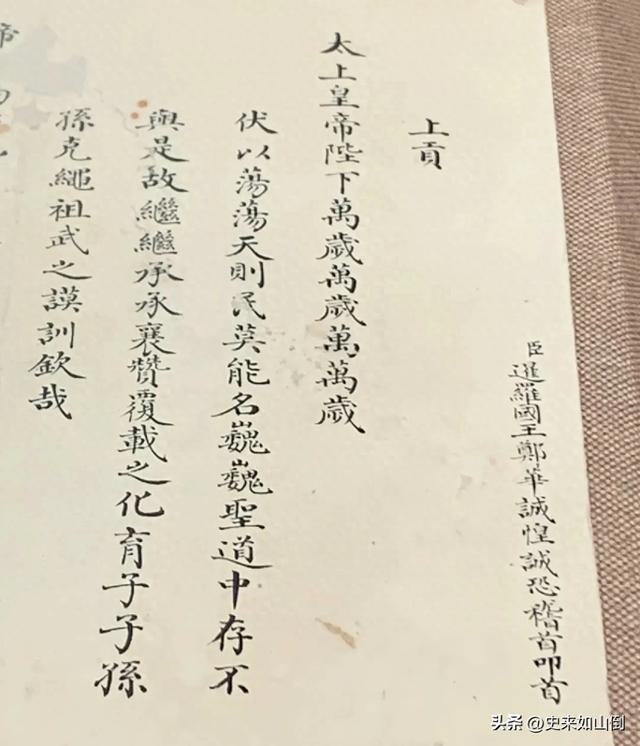 臣暹羅國王鄭華誠惶誠恐稽首叩首
上貢
太上皇帝陛下萬歲萬歲萬萬歲
伏以蕩蕩天則民莫能名巍巍聖道中存不
與是故繼繼承承襄贊覆載之化育子子孫
孫克繩祖武之謨訓欽哉
帝
头条 @史来如山倒